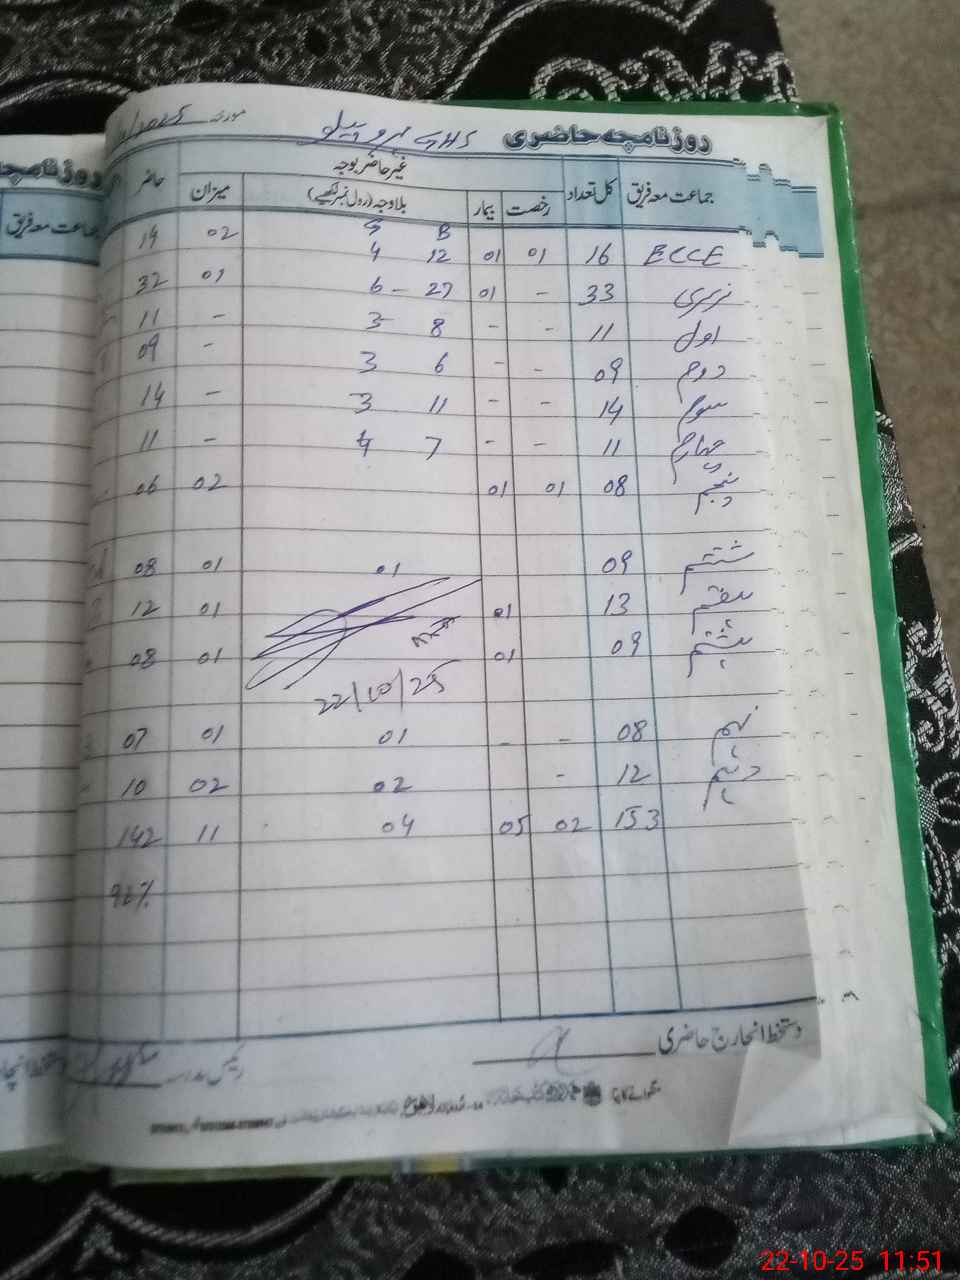 روزنامچہ حاضری GHS مورخہ
جماعت معہ فریق کل تعداد غیر حاضر بوجہ حاضر
رخصت بیمار بلاوجہ (رول نمبر لکھیے) میزان
G B
ECCE 16 01 01 12 4 02 14
نرسری 33 - 01 27 - 6 01 32
اول 11 - - 8 3 - 11
دوم 09 - - 6 3 - 09
سوم 14 - - 11 3 - 14
چہارم 11 - - 7 4 - 11
پنجم 08 01 01 02 06
ششتم 09 01 01 08
ہفتم 13 01 01 12
ہشتم 09 01 01 08
22/10/25
نہم 08 - - 01 01 07
دہم 12 - 02 02 10
153 02 05 04 11 142
96%
دستخط انچارج حاضری رئیس مدرسہ
روزنامچہ
جماعت معہ فریق
دستخط
22-10-25 11:51